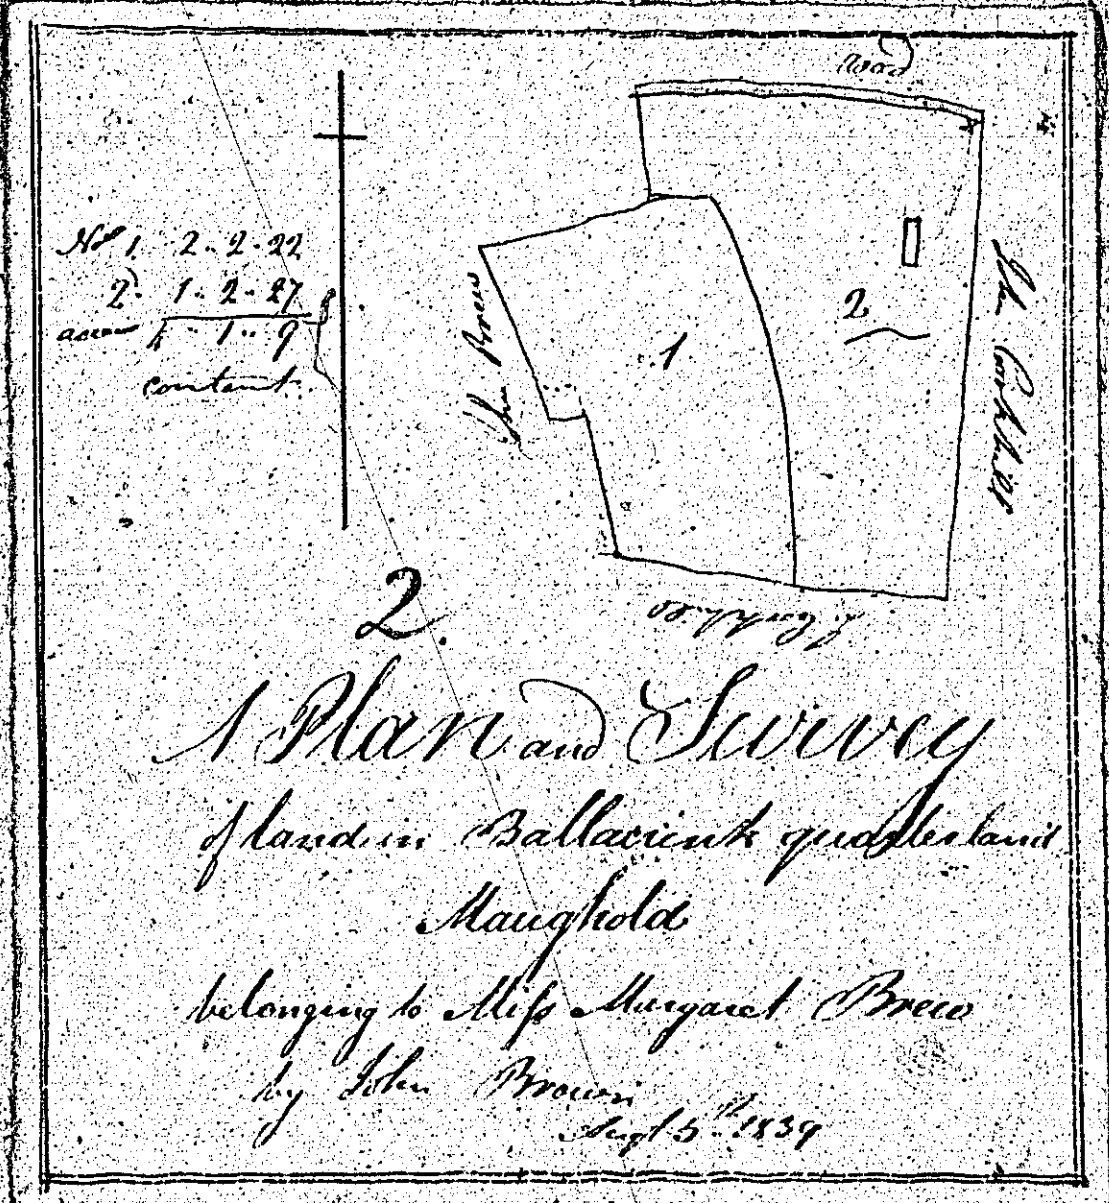 road
No 1 2..2.22
2. 1..2.27
acres 4.. 1.. 9
content.
1
2
John Brew
John Corkhill
J. Corkhill
2.
A Plan and Survey
of land in Ballacrink quarterland
Maughold
belonging to Miss Margaret Brew
by John Brown
Augt 5th 1839